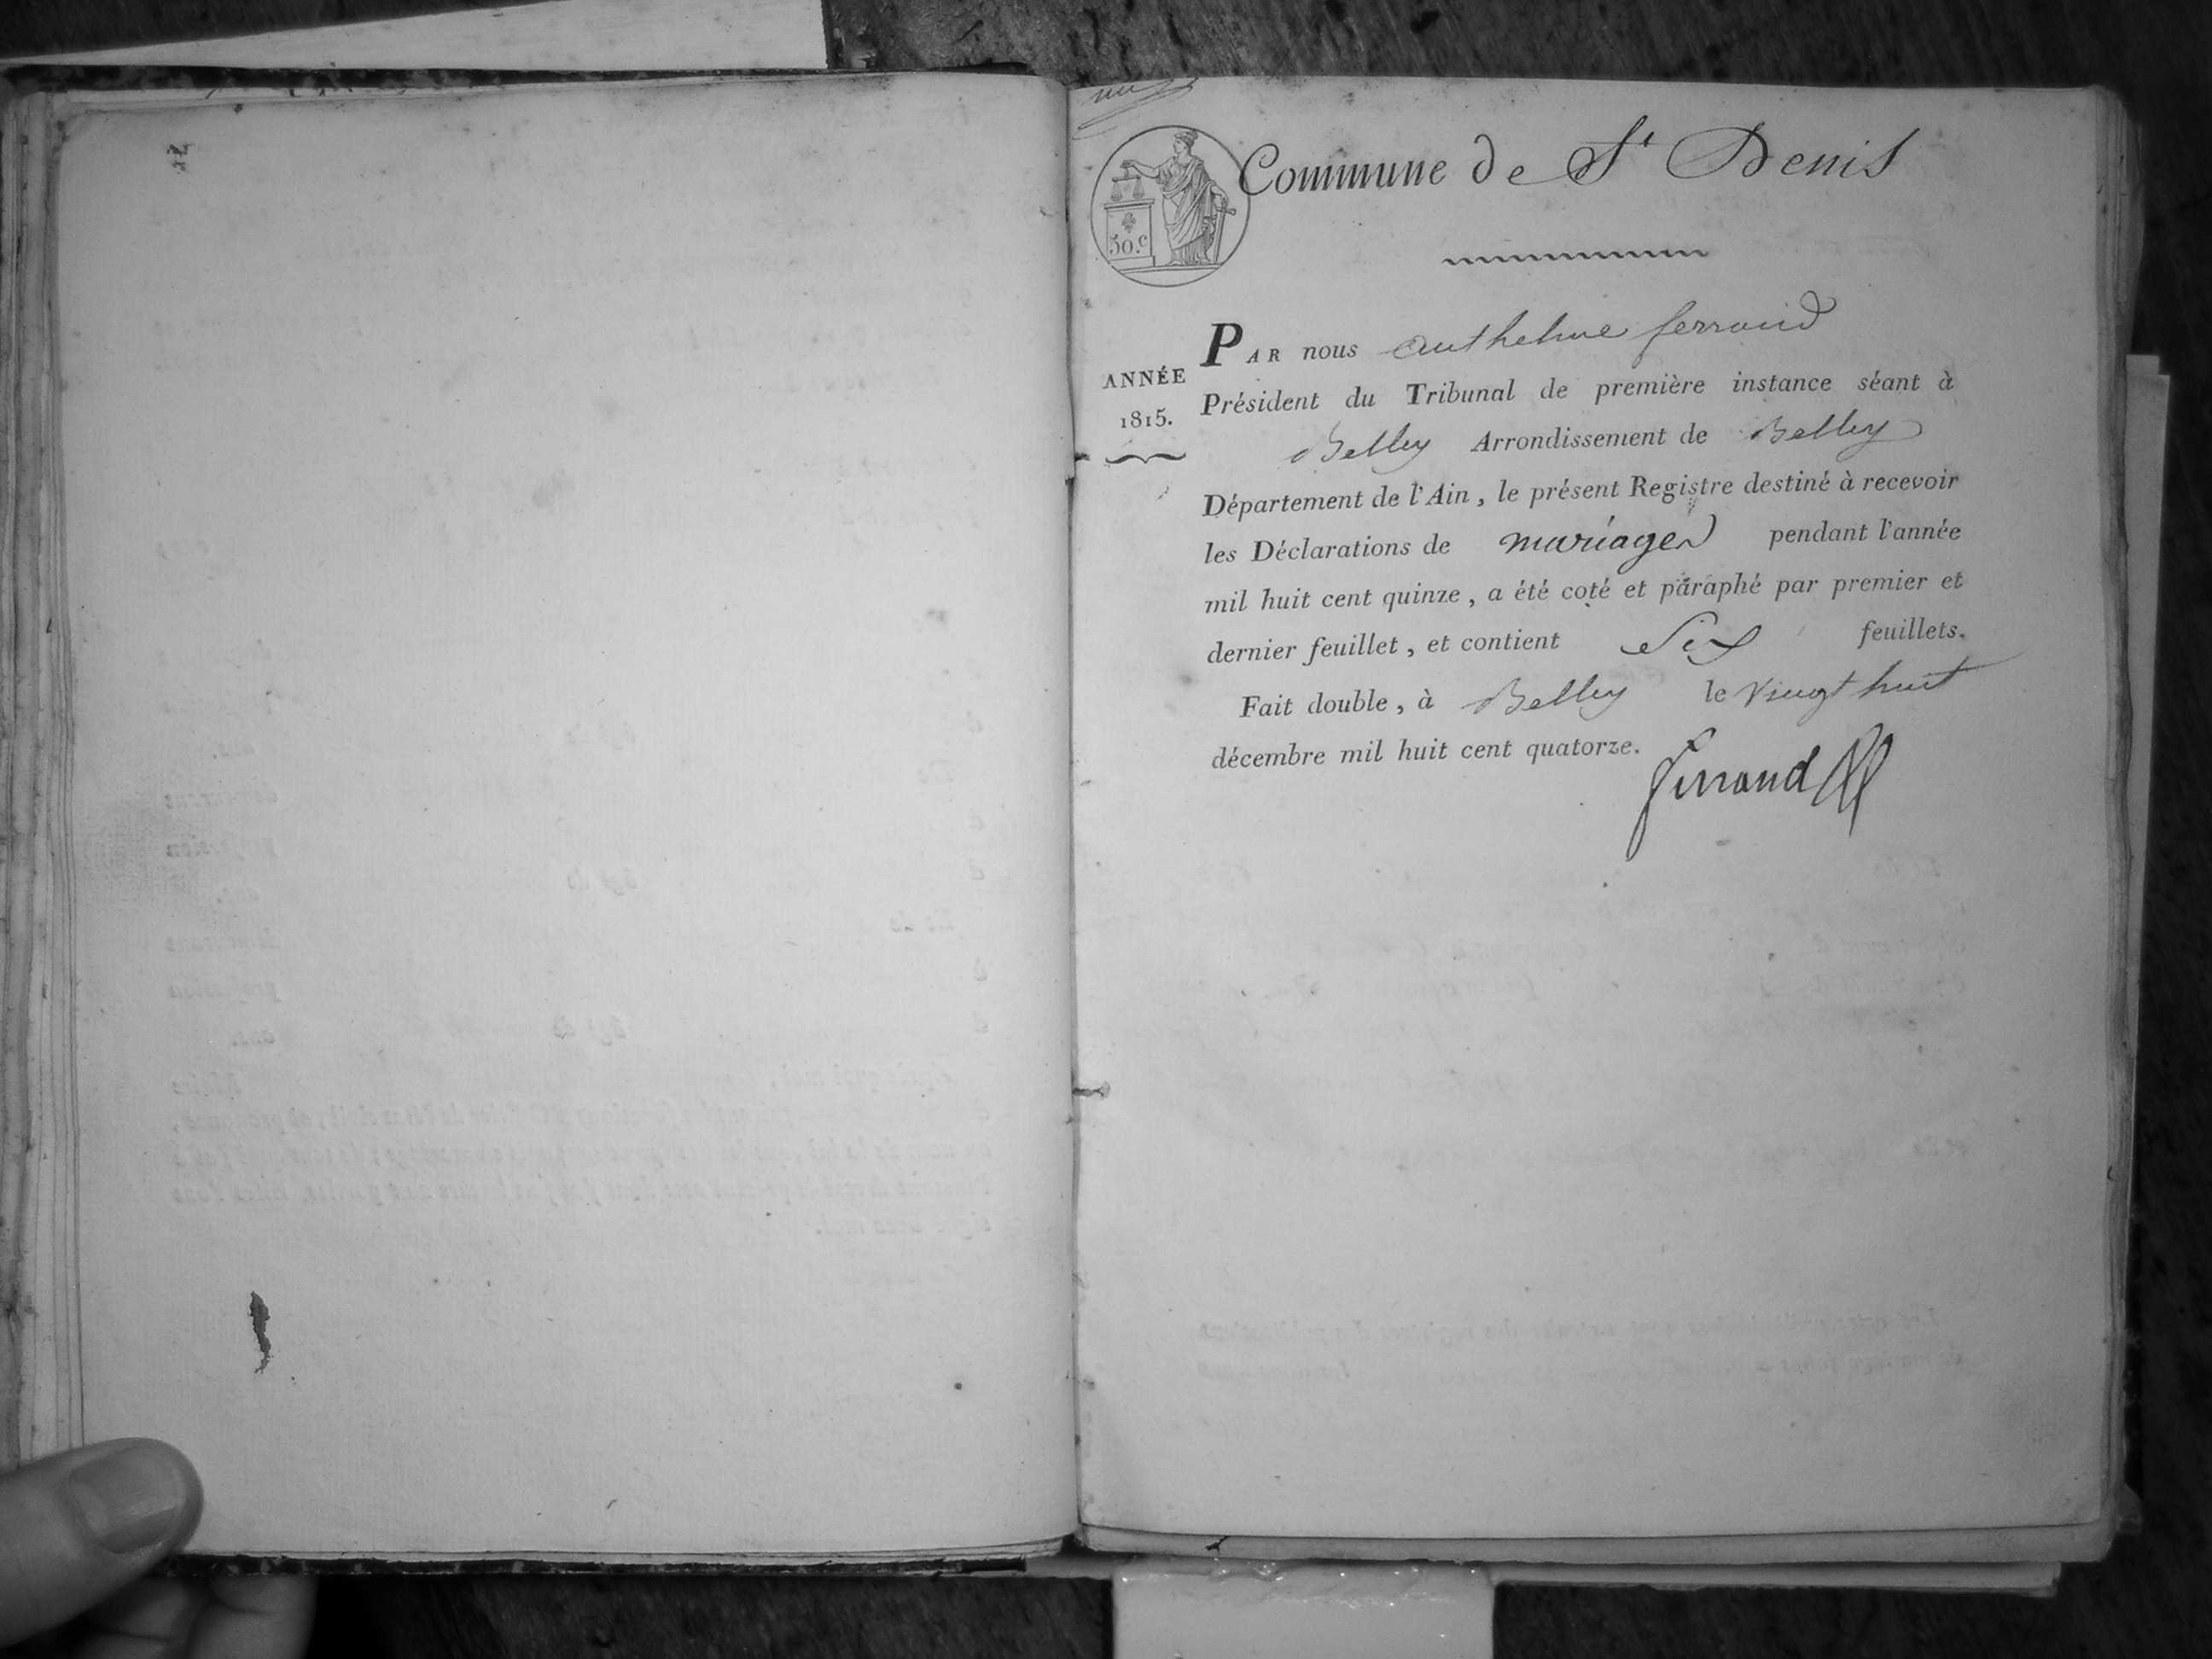 Commune de St Denis
50.c
PAR nous anthelme ferrand
ANNÉE
1815.
Président du Tribunal de première instance séant à
Belley Arrondissement de Belley
Département de l'Ain, le présent Registre destiné à recevoir
les Déclarations de mariages pendant l'année
mil huit cent quinze, a été coté et paraphé par premier et
dernier feuillet, et contient Six feuillets.
Fait double, à Belley le vingt huit
décembre mil huit cent quatorze.
ferrand